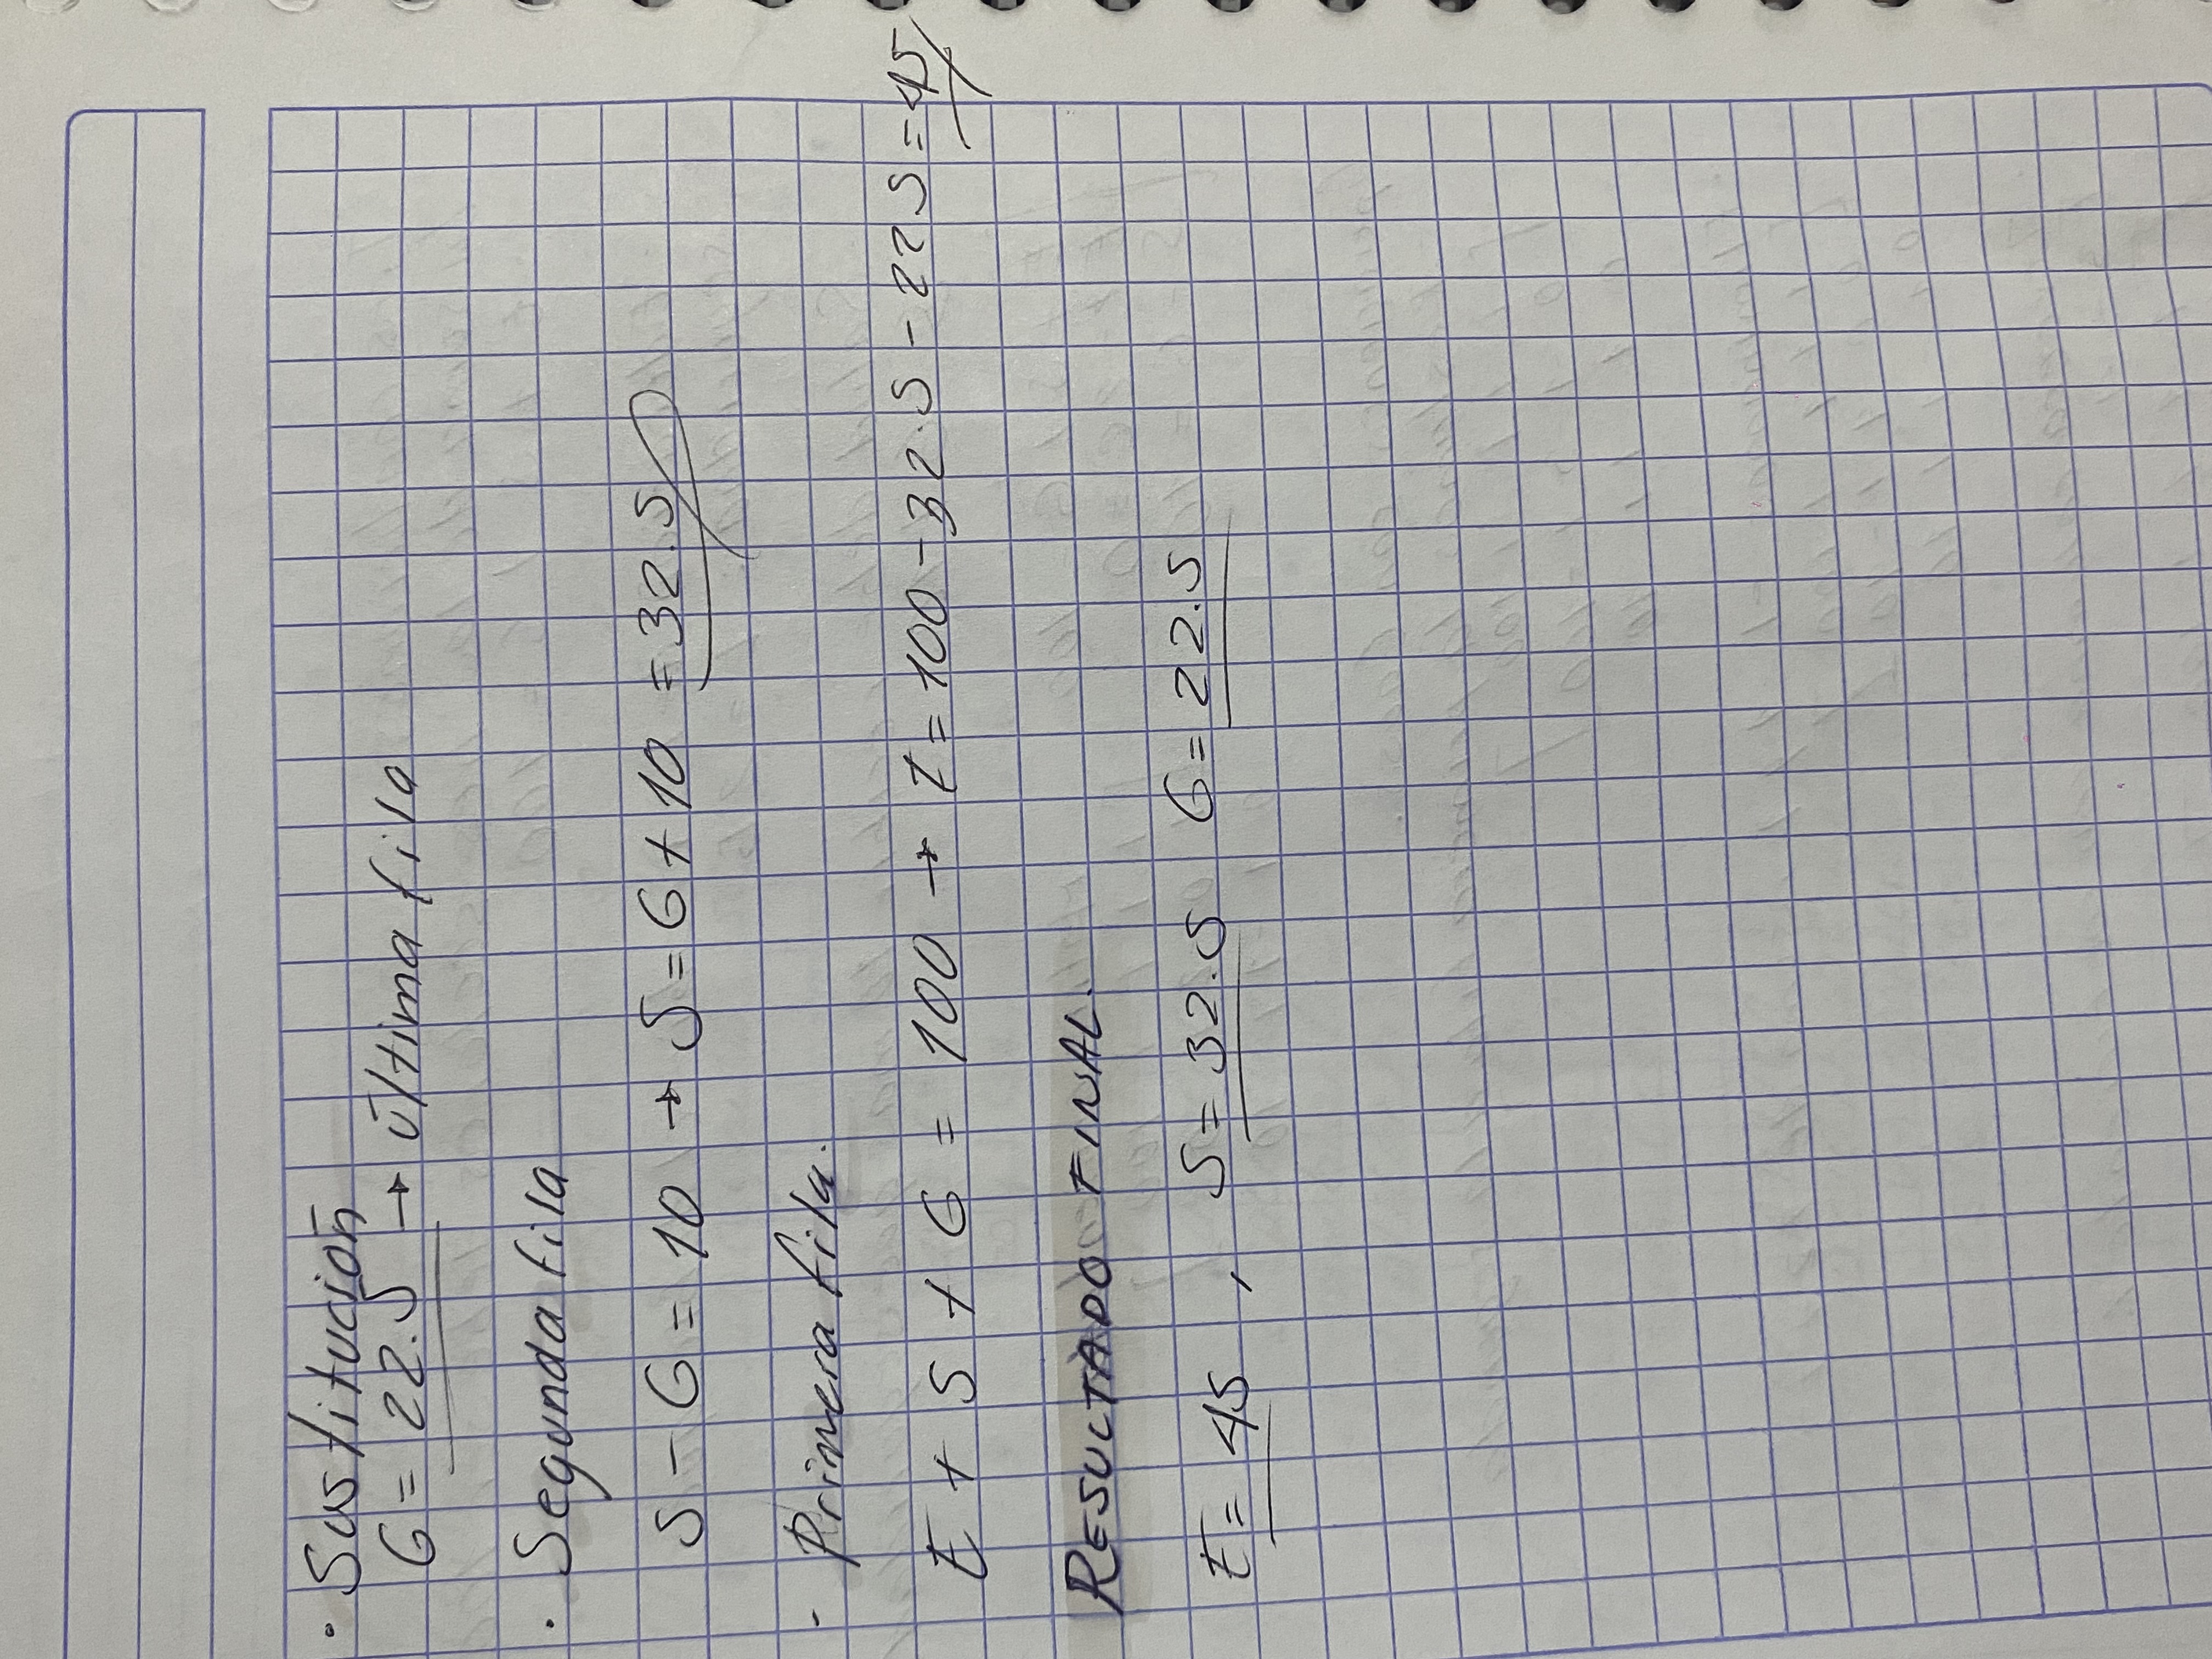 · Sustitución
G = 22.5 → última fila
· Segunda fila
S - G = 10 → S = G + 10 = 32.5
- Primera fila.
E + S + G = 100 → E = 100 - 32.5 - 22.5 = 45
RESULTADO FINAL.
E = 45 , S = 32.5 G = 22.5